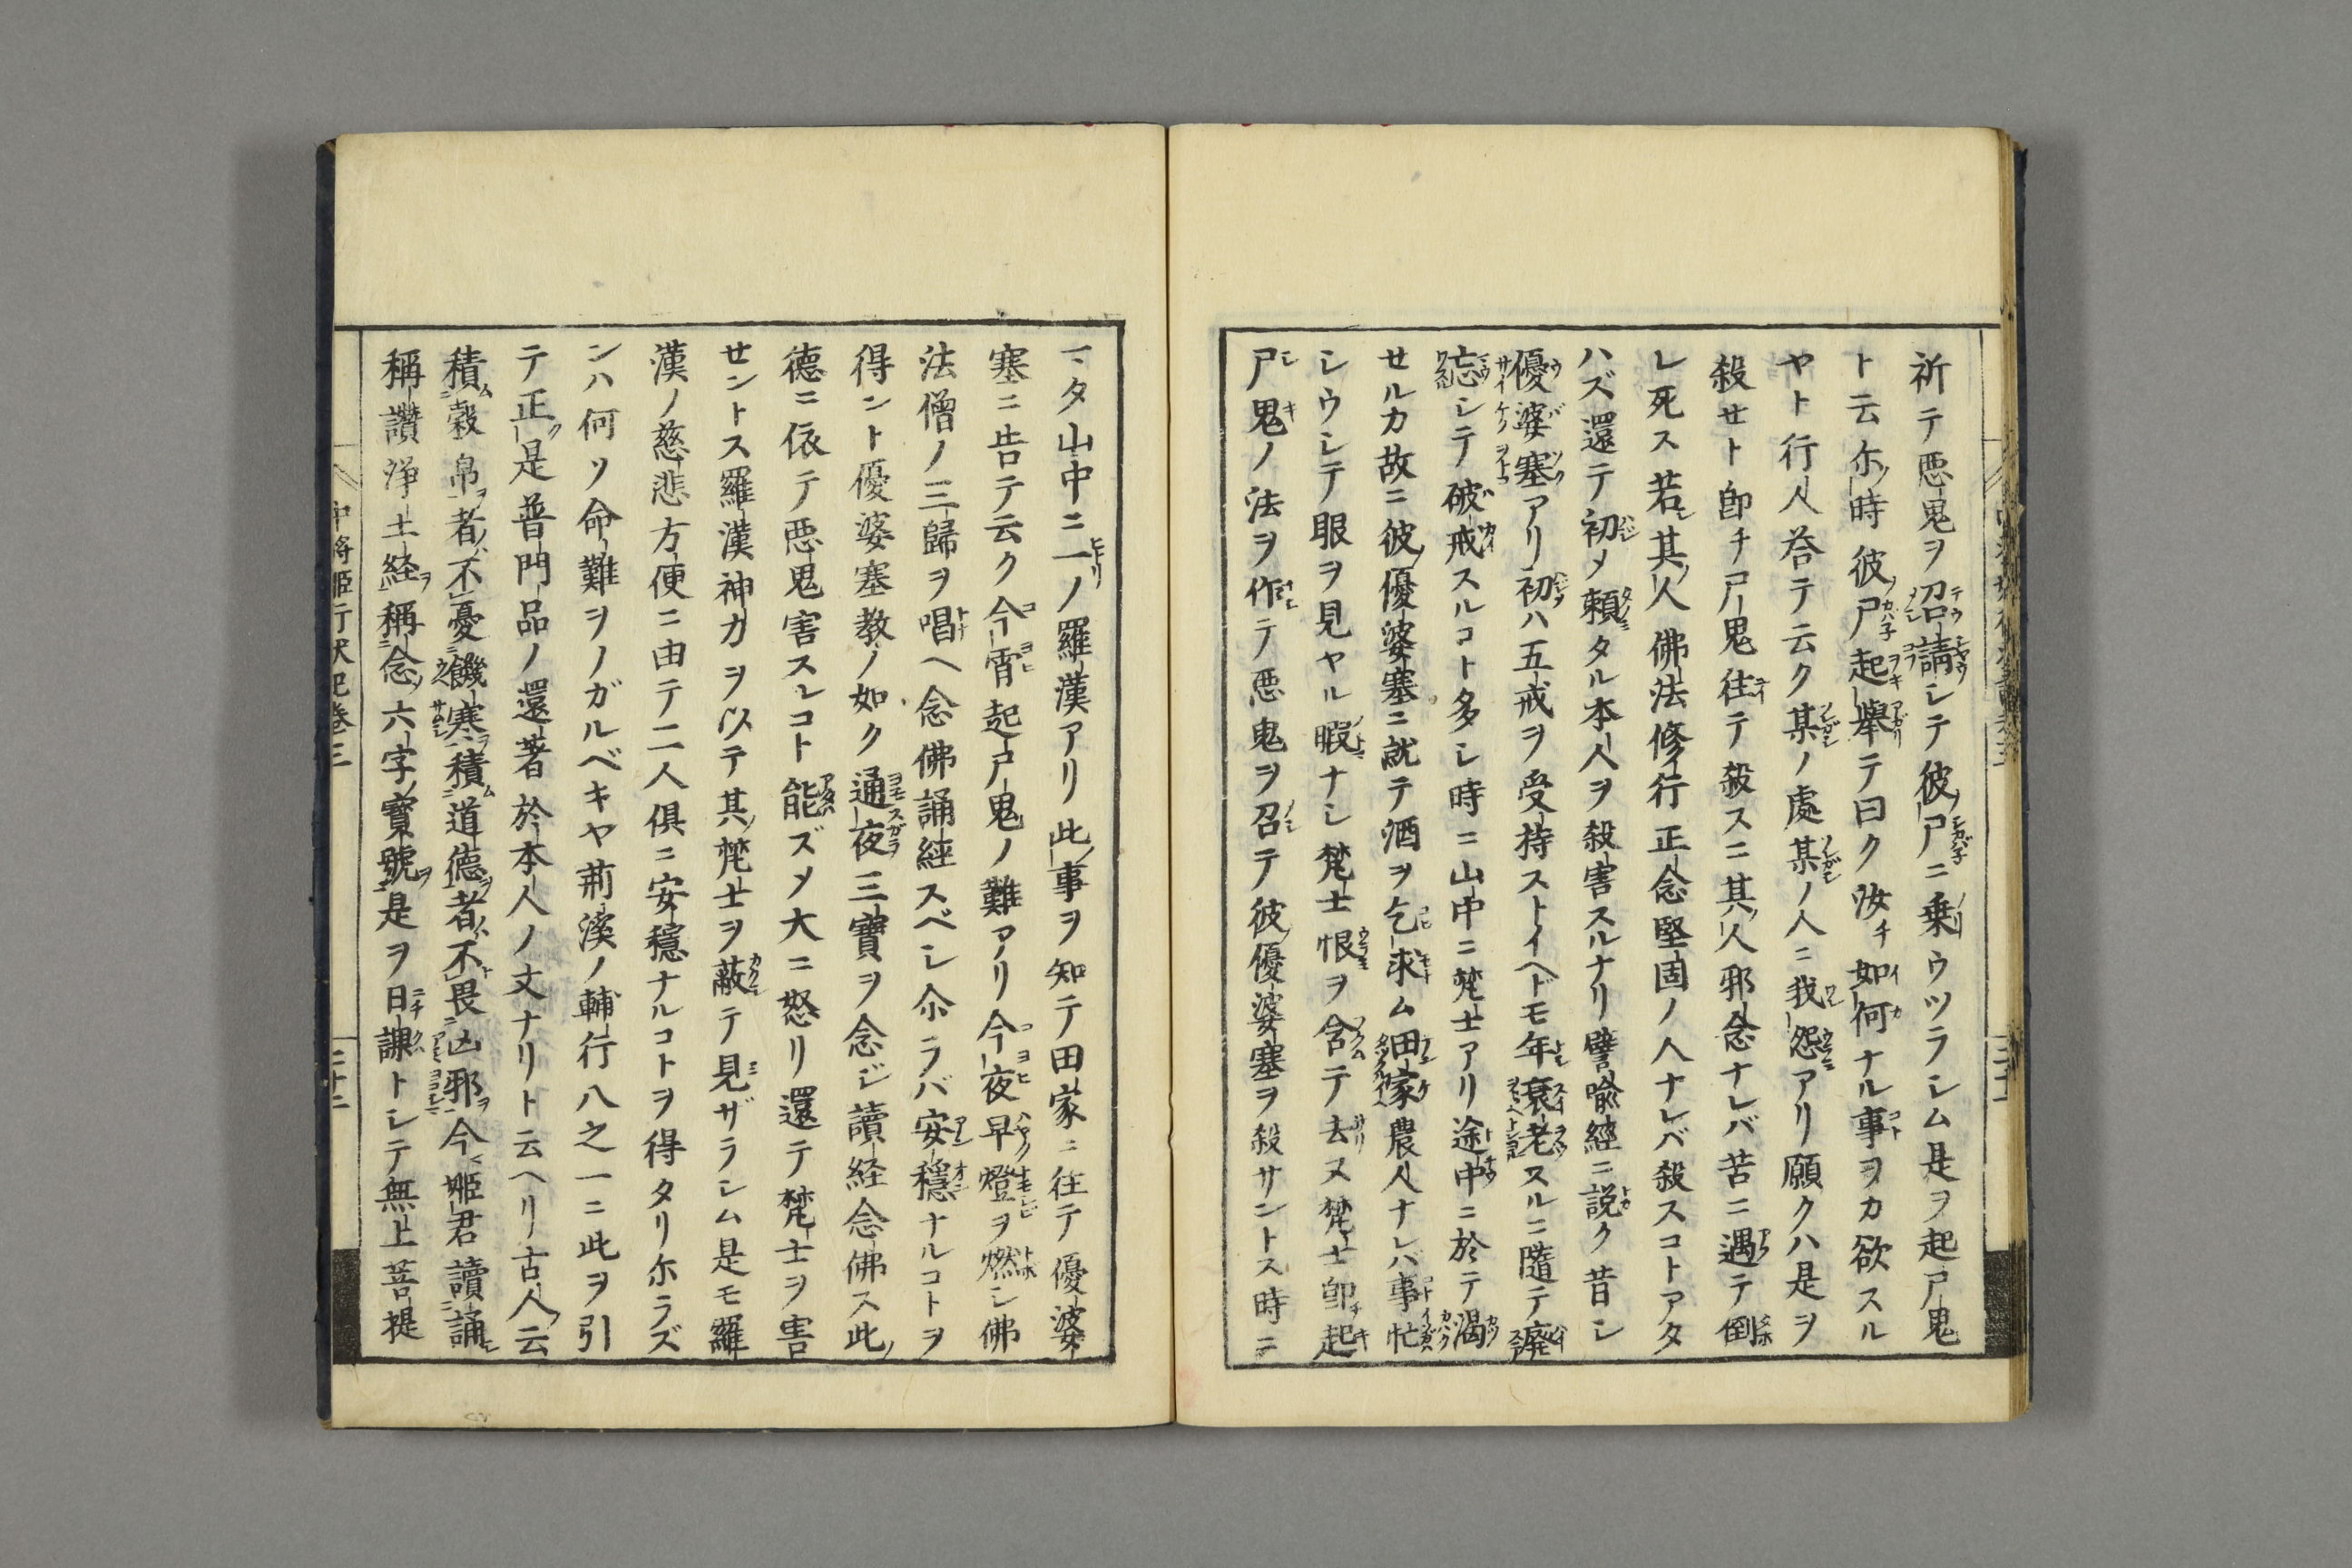 祈テ悪鬼ヲ招請シテ彼ノ尸ニ乗ウツラシム是ヲ起尸鬼
ト云尓時彼ノ尸起舉テ曰ク汝チ如何ナル事ヲカ欲スル
ヤト行人荅テ云ク某ノ處某ノ人ニ我怨アリ願クハ是ヲ
殺セト卽チ尸鬼往テ殺スニ其ノ人邪念ナレバ苦ニ遇テ倒
レ死ス若シ其ノ人佛法修行正念堅固ノ人ナレバ殺スコトアタ
ハズ還テ初メ頼タル本人ヲ殺害スルナリ譬喩經ニ説ク昔シ
優婆塞アリ初ハ五戒ヲ受持ストイヘドモ年衰老スルニ隨テ癈
忘シテ破戒スルコト多シ時ニ山中ニ梵士アリ途中ニ於テ渇
セルカ故ニ彼ノ優婆塞ニ就テ酒ヲ乞求ム田家農人ナレバ事忙
シウシテ眼ヲ見ヤル暇ナシ梵士恨ヲ含テ去ヌ梵士卽チ起
尸鬼ノ法ヲ作テ悪鬼ヲ召テ彼ノ優婆塞ヲ殺サントス時ニ
マタ山中ニ一ノ羅漢アリ此ノ事ヲ知テ田家ニ往テ優婆
塞ニ告テ云ク今霄起尸鬼ノ難アリ今夜早燈ヲ燃シ佛
法僧ノ三歸ヲ唱ヘ念佛誦經スベシ尒ラバ安穩ナルコトヲ
得ント優婆塞教ノ如ク通夜三寶ヲ念ジ讀経念佛ス此ノ
德ニ依テ悪鬼害スレコト能ズメ大ニ怒リ還テ梵士ヲ害
セントス羅漢神力ヲ以テ其ノ梵士ヲ蔽テ見ザラシム是モ羅
漢ノ慈悲方便ニ由テ二人俱ニ安穩ナルコトヲ得タリ尓ラズ
ンハ何ソ命難ヲノガルベキヤ荊溪ノ輔行八之一ニ此ヲ引
テ正ク是普門品ノ還著於本人ノ文ナリト云ヘリ古人ノ云
積ム穀帛ヲ者ハ不憂饑寒ヲ積ム道德ヲ者ハ不畏凶邪ヲ今姫君讀誦シ
稱讚淨土経ヲ稱念ノ六字ノ寶號ヲ是ヲ日課トシテ無上菩提
中將姫行狀記巻三
二十二